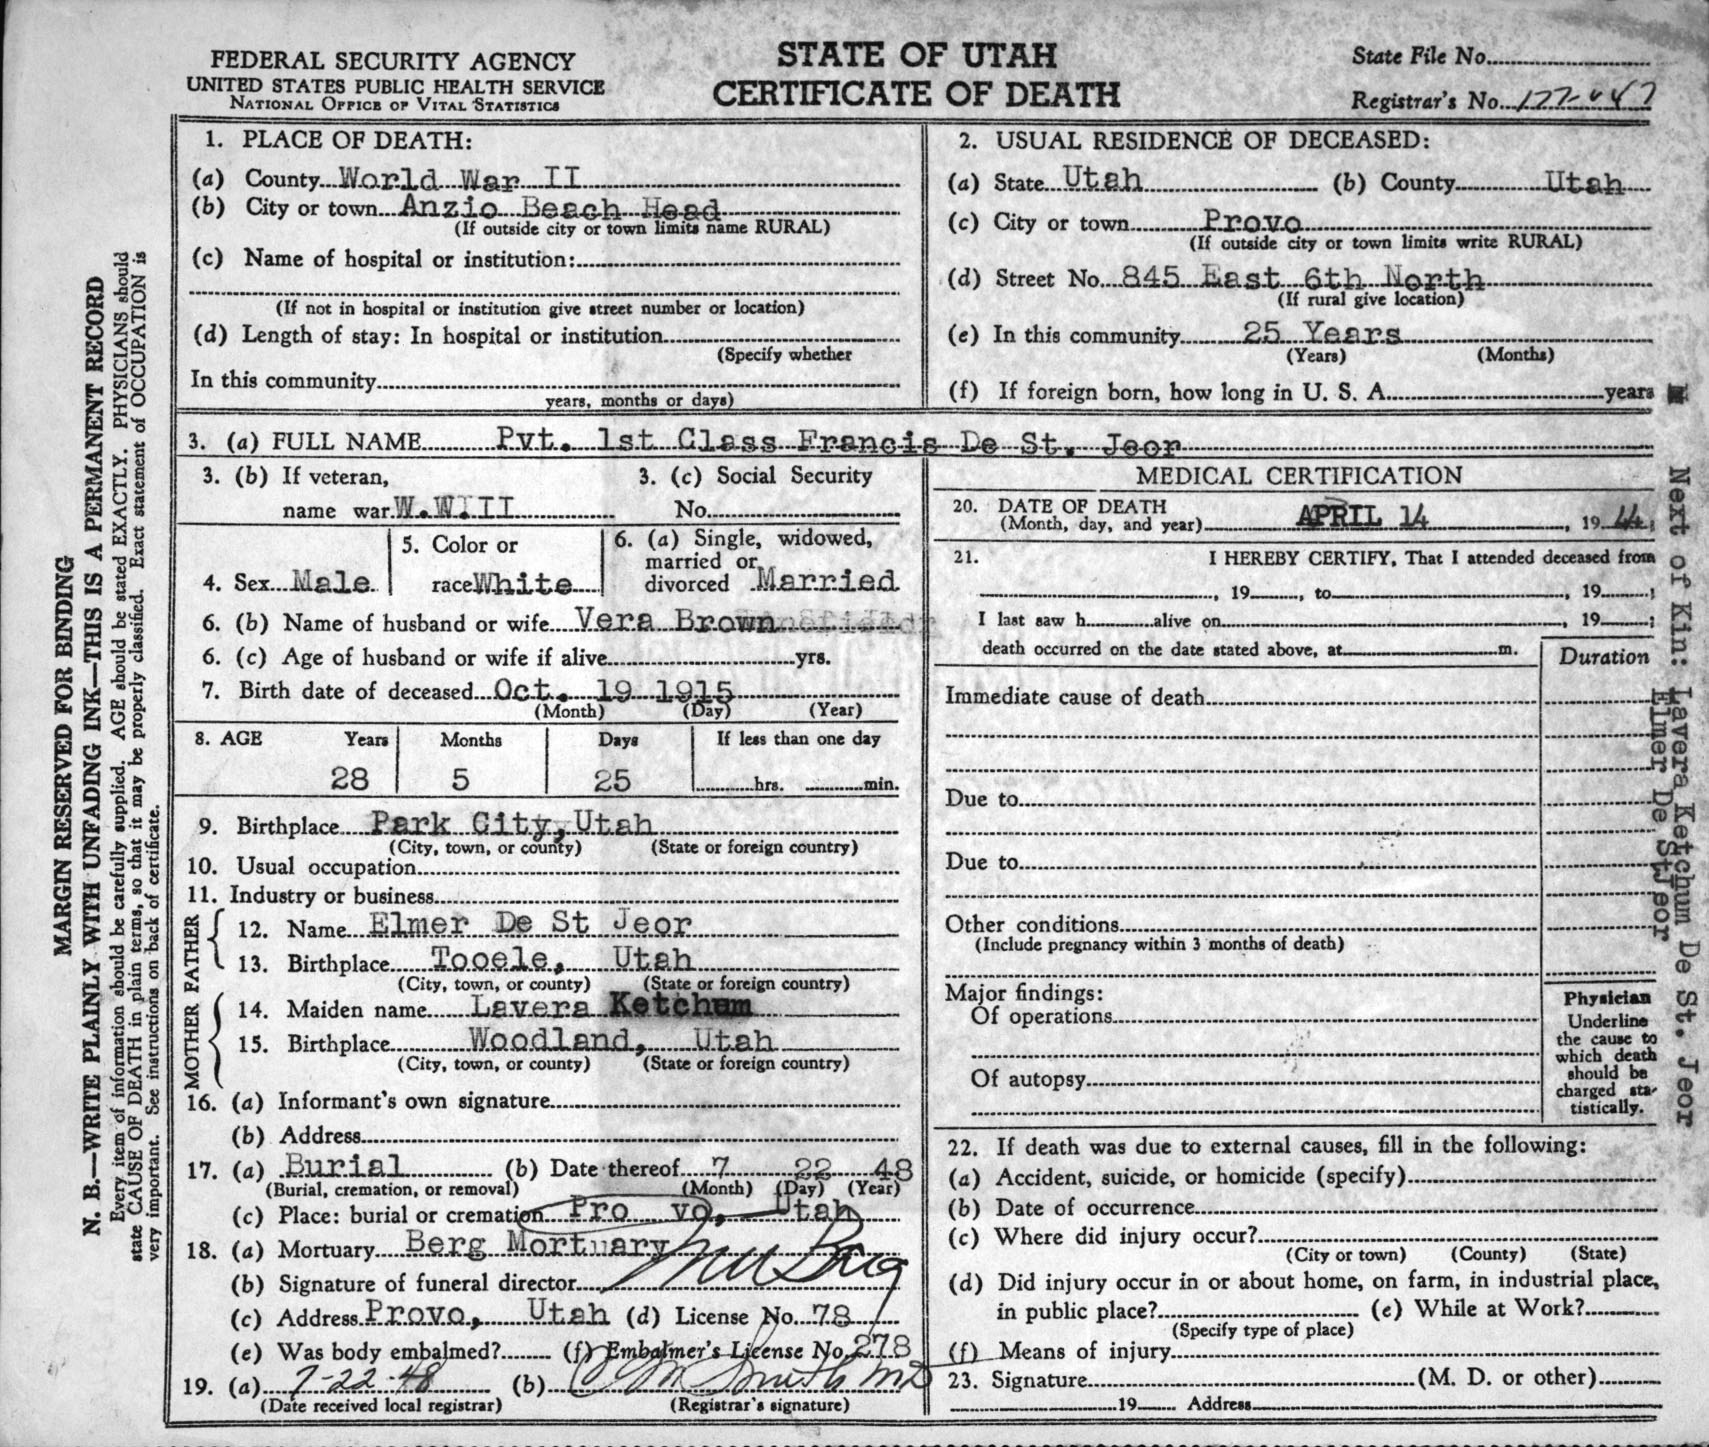 FEDERAL SECURITY AGENCY
UNITED STATES PUBLIC HEALTH SERVICE
NATIONAL OFFICE OF VITAL STATISTICS
STATE OF UTAH
CERTIFICATE OF DEATH
State File No.
Registrar's No. 177-
MARGIN RESERVED FOR BINDING
N. B.—WRITE PLAINLY WITH UNFADING INK—THIS IS A PERMANENT RECORD
Every item of information should be carefully supplied. AGE should be stated EXACTLY. PHYSICIANS should
state CAUSE OF DEATH in plain terms, so that it may be properly classified. Exact statement of OCCUPATION is
very important. See instructions on back of certificate.
1. PLACE OF DEATH:
(a) County World War II
(b) City or town Anzio Beach Head
(If outside city or town limits name RURAL)
(c) Name of hospital or institution:
(If not in hospital or institution give street number or location)
(d) Length of stay: In hospital or institution
(Specify whether
In this community
years, months or days)
2. USUAL RESIDENCE OF DECEASED:
(a) State Utah (b) County Utah
(c) City or town Provo
(If outside city or town limits write RURAL)
(d) Street No. 845 East 6th North
(If rural give location)
(e) In this community 25 Years
(Years) (Months)
(f) If foreign born, how long in U. S. A. years
3. (a) FULL NAME Pvt. 1st Class Francis De St. Jeor
3. (b) If veteran,
name war W.W.II
3. (c) Social Security
No.
4. Sex Male
5. Color or
race White
6. (a) Single, widowed,
married or
divorced Married
6. (b) Name of husband or wife Vera Brown
6. (c) Age of husband or wife if alive yrs.
7. Birth date of deceased Oct. 19 1915
(Month) (Day) (Year)
8. AGE Years Months Days If less than one day
28 5 25 hrs. min.
9. Birthplace Park City, Utah
(City, town, or county) (State or foreign country)
10. Usual occupation
11. Industry or business
FATHER
12. Name Elmer De St Jeor
13. Birthplace Tooele, Utah
(City, town, or county) (State or foreign country)
MOTHER
14. Maiden name Lavera Ketchum
15. Birthplace Woodland, Utah
(City, town, or county) (State or foreign country)
16. (a) Informant's own signature
(b) Address
17. (a) Burial (b) Date thereof 7 22 48
(Burial, cremation, or removal) (Month) (Day) (Year)
(c) Place: burial or cremation Pro vo, Utah
18. (a) Mortuary Berg Mortuary
(b) Signature of funeral director Berg
(c) Address Provo, Utah (d) License No. 78
(e) Was body embalmed? (f) Embalmer's License No. 278
19. (a) 7-22-48 (b) Smith MD
(Date received local registrar) (Registrar's signature)
MEDICAL CERTIFICATION
20. DATE OF DEATH
(Month, day, and year) APRIL 14, 1944;
21. I HEREBY CERTIFY, That I attended deceased from
, 19 , to , 19 ;
I last saw h alive on , 19 ;
death occurred on the date stated above, at m.
Duration
Immediate cause of death
Due to
Due to
Other conditions
(Include pregnancy within 3 months of death)
Major findings:
Of operations
Of autopsy
Physician
Underline
the cause to
which death
should be
charged sta-
tistically.
22. If death was due to external causes, fill in the following:
(a) Accident, suicide, or homicide (specify)
(b) Date of occurrence
(c) Where did injury occur?
(City or town) (County) (State)
(d) Did injury occur in or about home, on farm, in industrial place,
in public place? (e) While at Work?
(Specify type of place)
(f) Means of injury
23. Signature (M. D. or other)
19 Address
Next of Kin: Lavera Ketchum De St. Jeor
Elmer De St Jeor